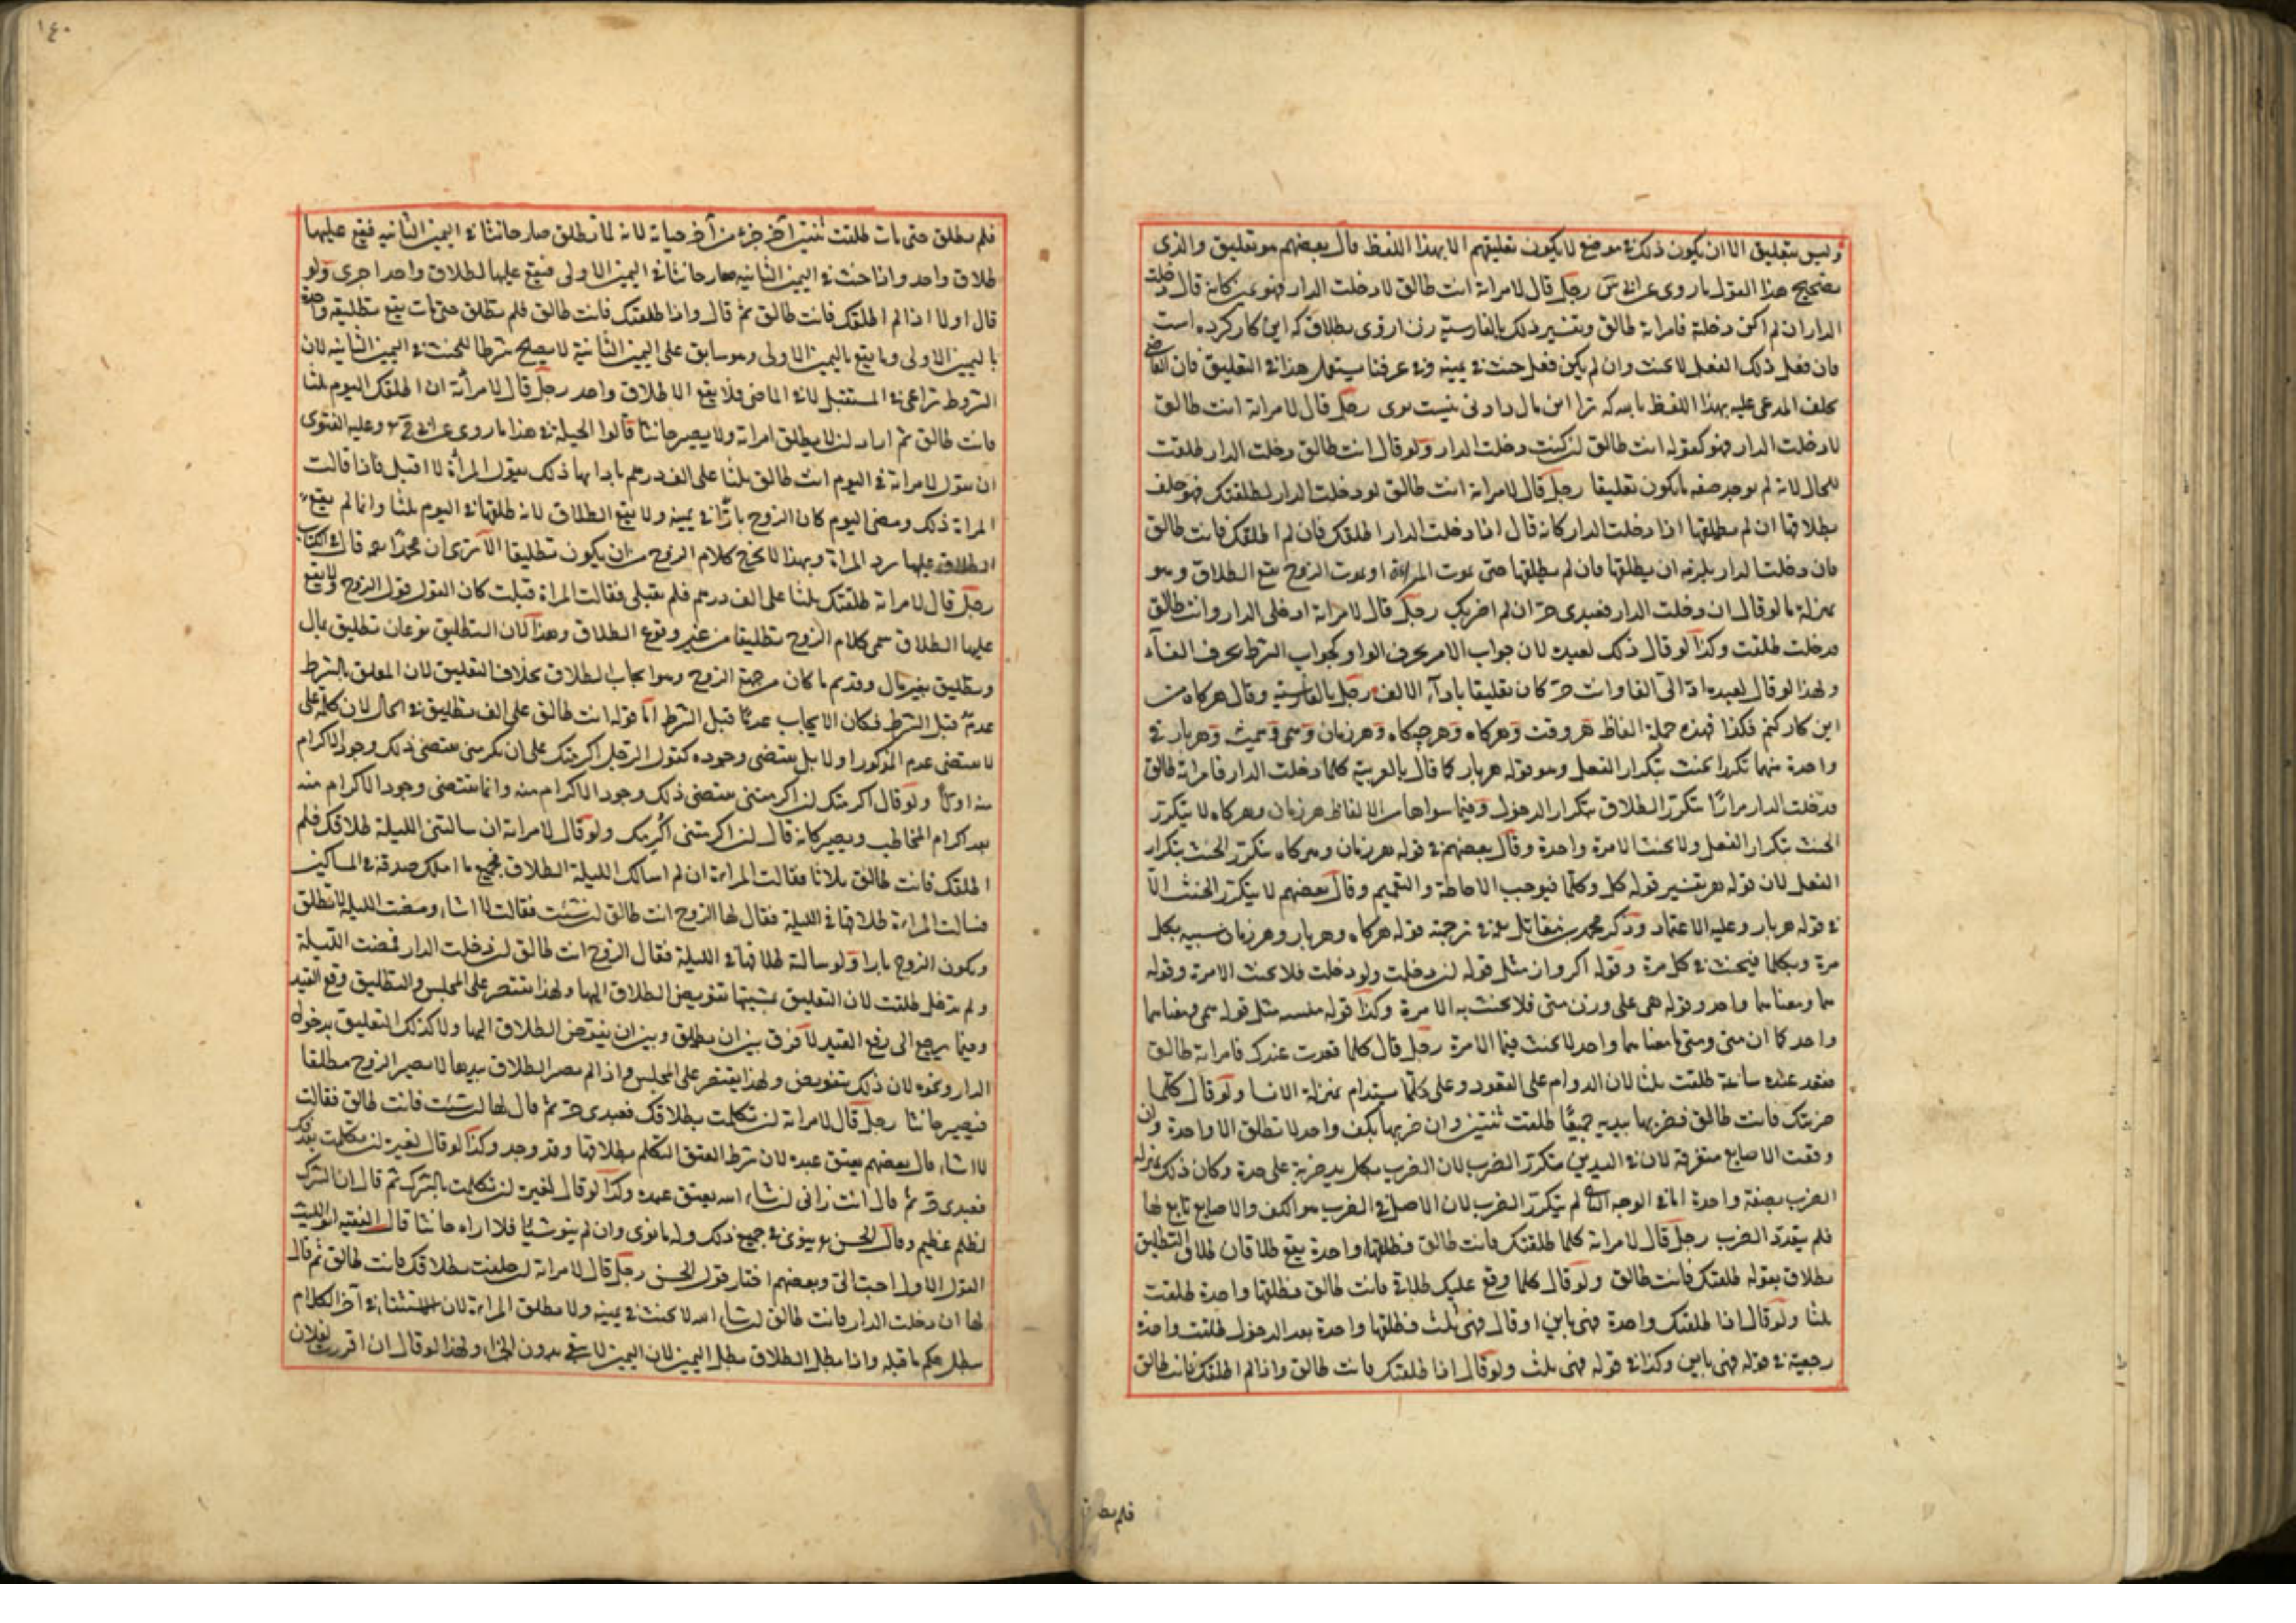 وليس بتعليق الا ان يكون ذلك في موضع لا يكون تعليقهم الا بهذا اللفظ قال بعضهم هو تعليق والذي
تصحيح هذا القول ما روي عن ابي س رجل قال لامراته انت طالق لا دخلت الدار فهو يمين كانه قال دخلت
الدار ان لم اكن دخلته فامراته طالق وتفسير ذلك بالفارسية زن ازوى بطلاق كه اين كار كرده است
فان فعل ذلك الفعل لا يحنث وان لم يكن فعل حنث في يمينه وفي عرفنا يستعمل هذا في التعليق فان القاضي
يحلف المدعى عليه بهذا اللفظ ترا اين مال دادنى نيست رجل قال لامراته انت طالق
لا دخلت الدار فهو كقوله انت طالق ان كنت دخلت الدار ولو قال انت طالق دخلت الدار طلقت
للحال لانه لم يوجد صفه ما يكون تعليقا رجل قال لامراته انت طالق لو دخلت الدار لطلقتك فهو حلف
بطلاقها ان لم يطلقها اذا دخلت الدار كانه قال اذا دخلت الدار اطلقك فان لم اطلقك فانت طالق
فان دخلت الدار يلزمه ان يطلقها فان لم يطلقها حتى يموت المراة او يموت الزوج يقع الطلاق وهو
بمنزلة ما لو قال ان دخلت الدار فعبدي حر ان لم اضربك رجل قال لامراته ادخلي الدار وانت طالق
فدخلت طلقت وكذا لو قال ذلك لعبده لان جواب الامر بحرف الواو كجواب الشرط بحرف الفاء
ولهذا لو قال لعبده اد الي الفا وانت حر كان تعليقا باداء الالف رجل بالفارسية وقال هركاه من
اين كار كنم فكذا فهذه جملة الفاظ هر وقت وهركاه وهرجكاه وهر زمان وهمى وهميشه وهربار في
واحدة منها تكرار الحنث بتكرار الفعل وهو قوله هربار كما قال بالعربية كلما دخلت الدار فامراته طالق
فدخلت الدار مرارا يتكرر الطلاق بتكرار الدخول وفيما سواها من الالفاظ هر زمان وهركاه لا يتكرر
الحنث بتكرار الفعل ولا يحنث الا مرة واحدة وقال بعضهم في قوله هر زمان وهركاه يتكرر الحنث بتكرار
الفعل لان قوله هر تفسير قوله كل وكلما فيوجب الاحاطة والتعميم وقال بعضهم لا يتكرر الحنث الا
في قوله هربار وعليه الاعتماد وذكر محمد بن مقاتل في ترجمة قوله هركاه وهربار وهر زمان شبيه بكل
مرة وبكلما فيحنث في كل مرة وقوله اكر وان مثل قوله ان دخلت ولو دخلت فلا يحنث الا مرة وقوله
واحد وقوله همى على وزن متى فلا يحنث به الا مرة وكذا قوله مثل قوله همى ومعناهما
واحد كما ان متى ومتى ما معناهما واحد لا يحنث فيها الا مرة رجل قال كلما قعدت عندك فامراته طالق
فقعد عنده ساعة طلقت ثلثا لان الدوام على القعود وعلى كلما يستدام بمنزلة الانشا ولو قال كلما
ضربتك فانت طالق فضربها بيديه جميعا طلقت ثنتين وان ضربها بكف واحد لا تطلق الا واحدة وان
وقعت الاصابع متفرقة لان في اليدين يتكرر الضرب لان الضرب بكل يد ضربة على حدة وكان ذلك بمنزلة
الضرب بصفة واحدة اما في الوجه الثاني لم يتكرر الضرب لان الاصل في الضرب هو الكف والاصابع تابع لها
فلم يتعدد الضرب رجل قال لامراته كلما طلقتك فانت طالق فطلقها واحدة يقع طلاقان طلاق بالتطليق
بطلاق بقوله طلقتك فانت طالق ولو قال كلما وقع عليك طلاق فانت طالق فطلقها واحدة طلقت
ثلثا ولو قال اذا طلقتك واحدة فهي باين او قال فهي ثلث فطلقها واحدة بعد الدخول طلقت واحدة
رجعية في قوله فهي باين وكذا في قوله فهي ثلث ولو قال اذا طلقتك فانت طالق واذا لم اطلقك فانت طالق
فلم يطلق
١٤٠
فلم يطلق حتى مات طلقت ثنتين آخر جزء من آخر حياته لانه لما لم يطلق صار حانثا في اليمين الثانيه فيقع عليها
طلاق واحد واذا حنث في اليمين الثانيه صار حانثا في اليمين الاولى فيقع عليها طلاق واحد اخرى ولو
قال اولا اذا لم اطلقك فانت طالق ثم قال واذا طلقتك فانت طالق فلم يطلق حتى مات يقع تطليقه واحدة
باليمين الاولى وما يقع باليمين الاولى وهو سابق على اليمين الثانية لا يصلح شرطا للحنث في اليمين الثانيه لان
الشروط تراعى في المستقبل لا في الماضي فلا يقع الا طلاق واحد رجل قال لامراته ان اطلقك اليوم ثلثا
فانت طالق ثم اراد ان لا يطلق امراته ولا يصير حانثا قالوا الحيلة في هذا ما روي عن ابي ح وعليه الفتوى
ان يقول لامراته في اليوم انت طالق ثلثا على الف درهم ذلك يقول المرأة لا اقبل فاذا قالت
المراة ذلك ومضى اليوم كان الزوج بارا في يمينه ولا يقع الطلاق لانه طلقها في اليوم ثلثا وانما لم يقع
الطلاق عليها برد المراة وبهذا لا يخرج كلام الزوج من ان يكون تطليقا الا ترى ان محمدا رحمه قال في الكتاب
رجل قال لامراته طلقتك ثلثا على الف درهم فلم تقبلي فقالت المراة قبلت كان القول قول الزوج ولا يقع
عليها الطلاق سمى كلام الزوج تطليقا من غير وقوع الطلاق وهذا لان التطليق نوعان تطليق بمال
وتطليق بغير مال وقد تم ما كان من جهة الزوج وهو ايجاب الطلاق بخلاف التعليق لان المعلق بالشرط
عدم قبل الشرط فكان الايجاب عدما قبل الشرط اما قوله انت طالق على الف تطليق في الحال لان كلمة على
لا يقتضي عدم المذكور اولا بل يقتضي وجوده كقول الرجل اكرمتك على ان تكرمني يقتضي ذلك وجود الاكرام
منه اولا ولو قال اكرمتك ان اكرمتني يقتضي ذلك وجود الاكرام منه وانما يقتضي وجود الاكرام منه
بعد اكرام المخاطب ويصير كانه قال ان اكرمتني اكرمك ولو قال لامراته ان سالتني الليلة طلاقك فلم
اطلقك فانت طالق ثلاثا فقالت المراة ان لم اسالك الليلة الطلاق فجميع ما املك صدقة في المساكين
فسالت المراة طلاقها في الليلة فقال لها الزوج انت طالق ان شئت فقالت لا اشاء ومضت الليلة لا تطلق
ويكون الزوج بارا ولو سالته طلاقها في الليلة فقال الزوج انت طالق ان دخلت الدار فمضت الليلة
ولم تدخل طلقت لان التعليق بمشيتها تفويض الطلاق اليها ولهذا يقتصر على المجلس والتطليق رفع القيد
وفيما يرجع الى رفع القيد لا فرق بين ان يطلق وبين ان يفوض الطلاق اليها ولا كذلك التعليق بدخول
الدار ونحوه لان ذلك تفويض ولهذا يقتصر على المجلس واذا لم يصر الطلاق بيدها لا يصير الزوج مطلقا
فيصير حانثا رجل قال لامراته ان تكلمت بطلاقك فعبدي حر ثم قال لها ان شئت فانت طالق فقالت
لا اشاء قال بعضهم يعتق عبده لان شرط العتق التكلم بطلاقها وقد وجد وكذا لو قال لغيره ان تكلمت بقذفك
فعبدي حر ثم قال انت زاني ان شاء الله يعتق عبده وكذا لو قال لغيره ان تكلمت بالشرك ثم قال ان الشرك
لظلم عظيم وقال الحسن ينوي في جميع ذلك وله ما نوى وان لم ينو شيئا فلا اراه حانثا قال الفقيه ابو الليث
القول الاول احب الي وبعضهم اختار قول الحسن رجل قال لامراته ان حلفت بطلاقك فانت طالق ثم قال
لها ان دخلت الدار فانت طالق ان شاء الله لا يحنث في يمينه ولا تطلق المراة لان الاستثناء في آخر الكلام
يبطل حكم ما قبله واذا بطل الطلاق بطل اليمين لان اليمين لا تبقى بدون الجزاء ولهذا لو قال ان اقررت لفلان